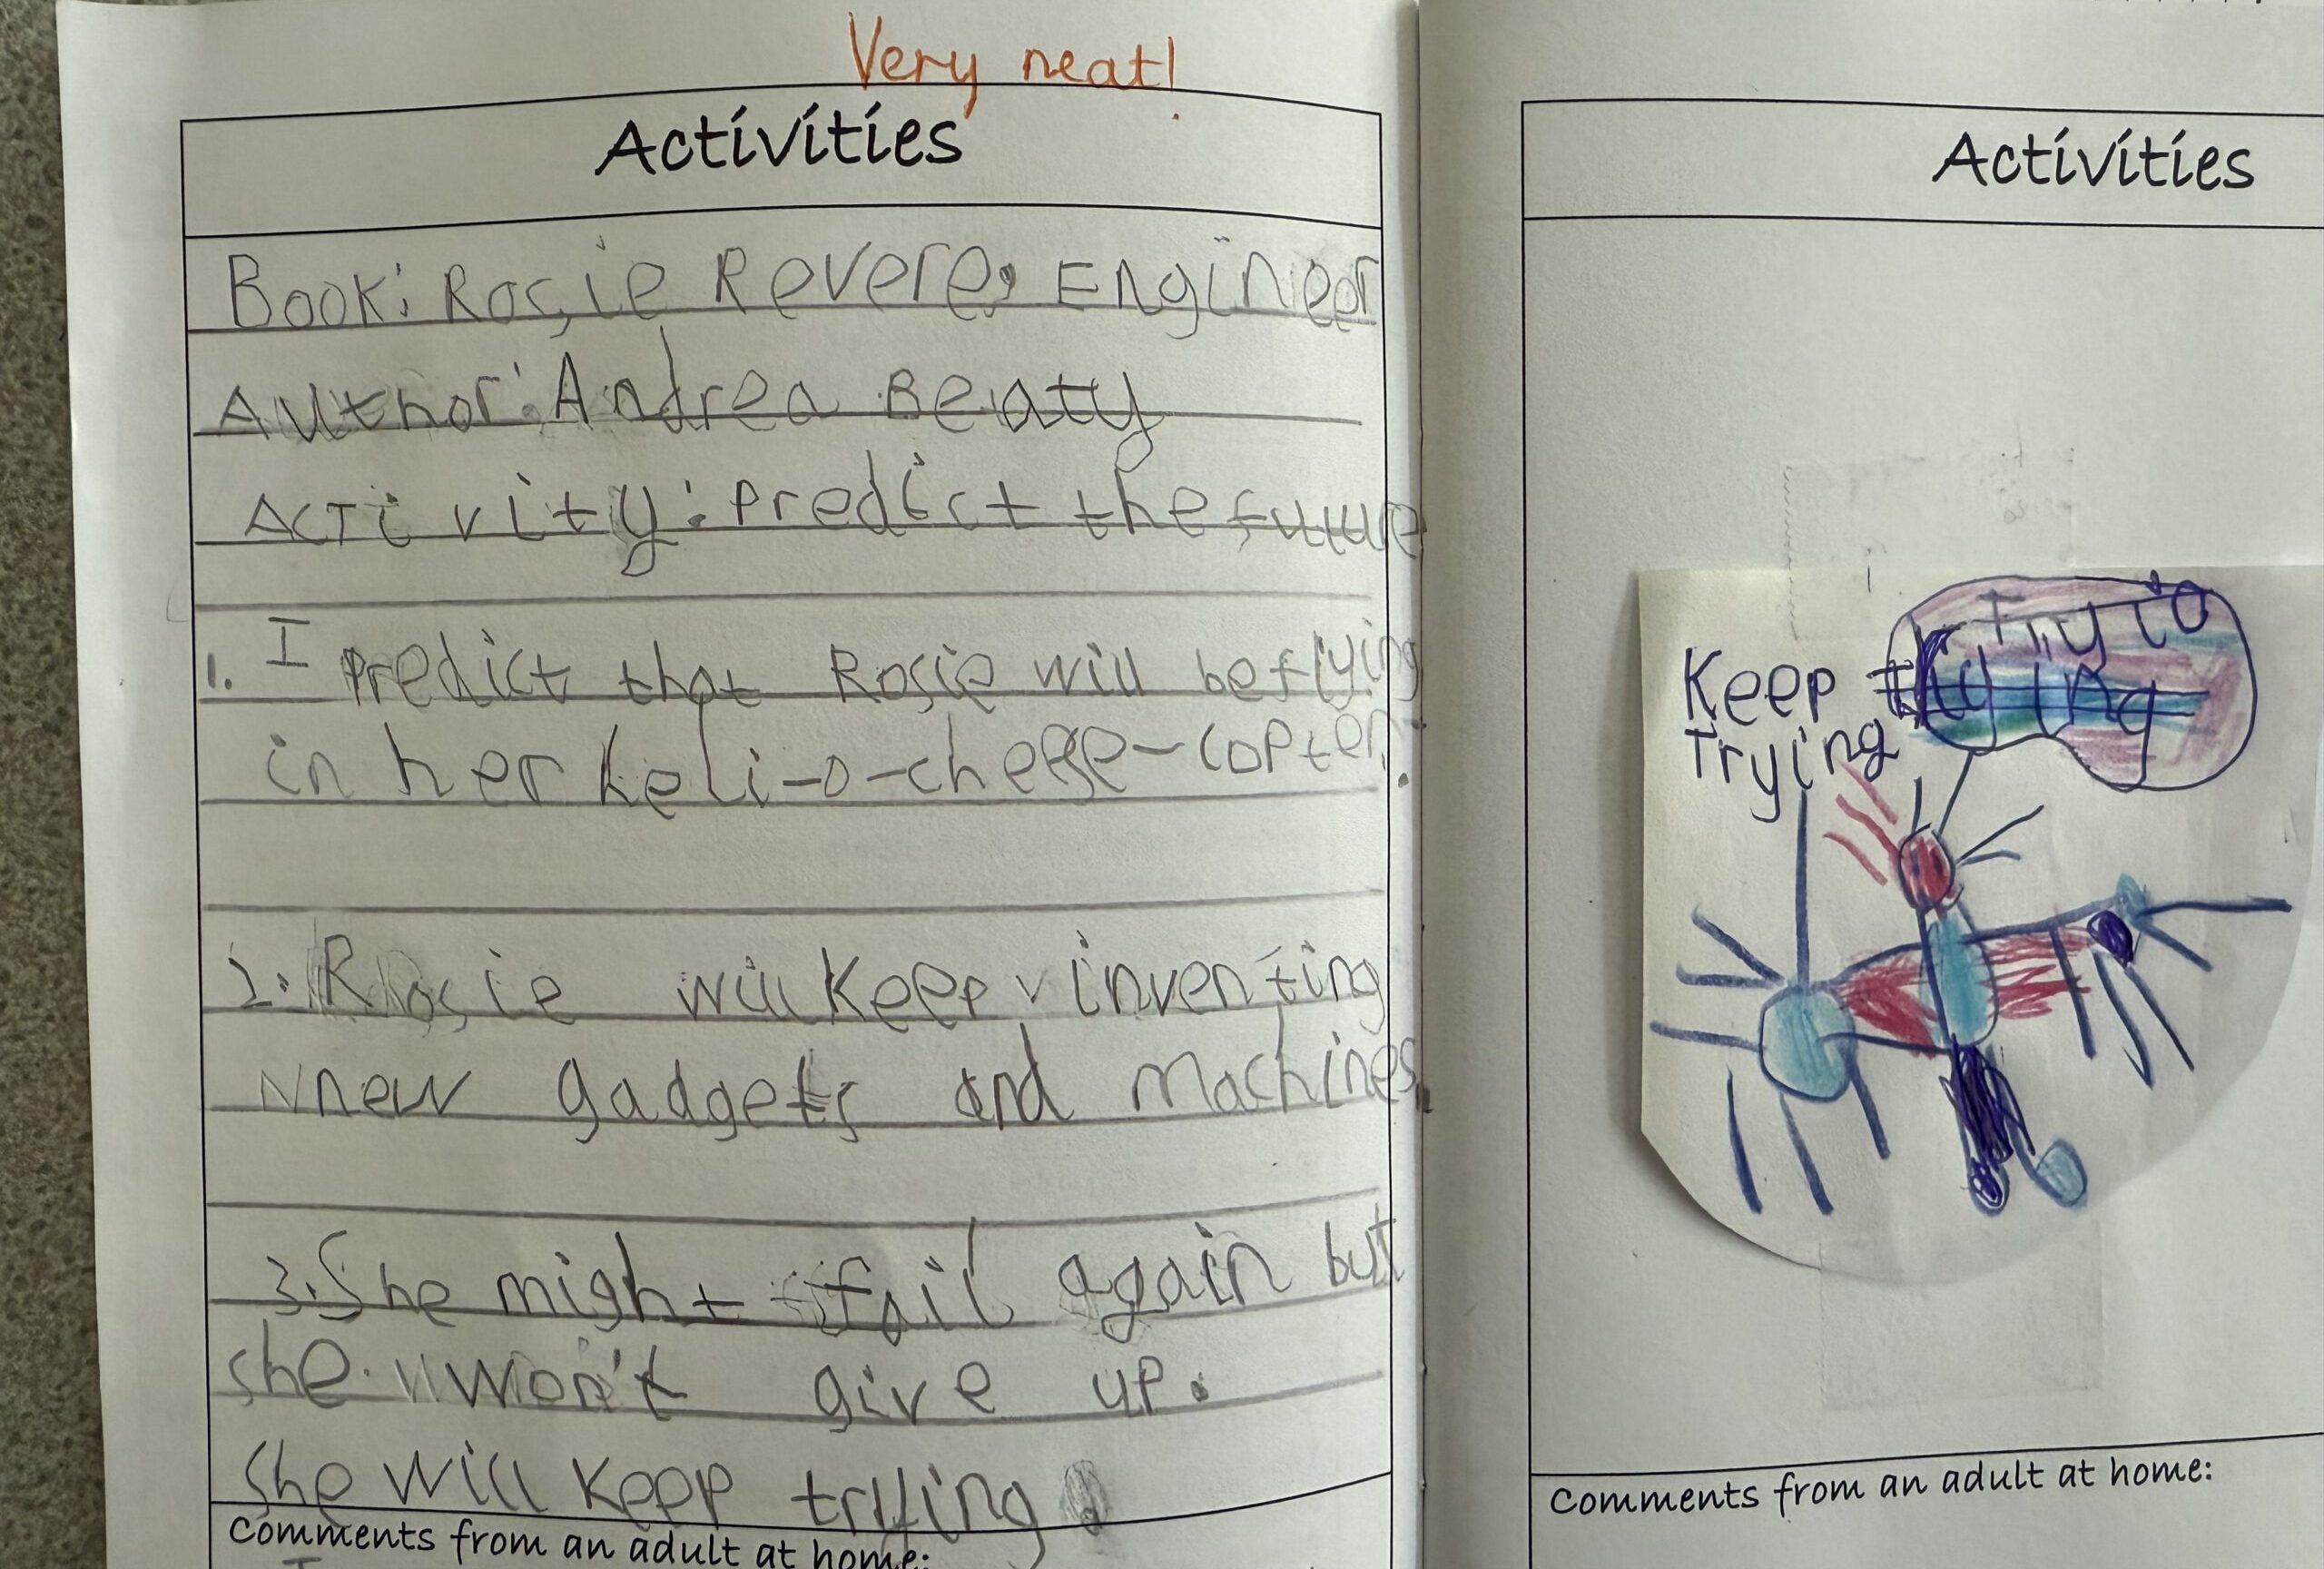 Very neat!
Activities
Book: Rosie Revere, Engineer
Author: Andrea Beaty
Activity: Predict the future
1. I predict that Rosie will be flying
in her heli-o-cheese-copter.
2. Rosie will keep inventing
new gadgets and machines
3. She might fail again but
she won't give up.
She will keep trying.
Comments from an adult at home:
Activities
Try to
Keep trying
Trying
Comments from an adult at home: